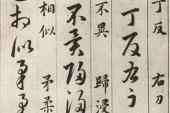 丁反 右刀
丁反右刀
不異 歸浸
不異歸浸
相似 矛柔
相似矛